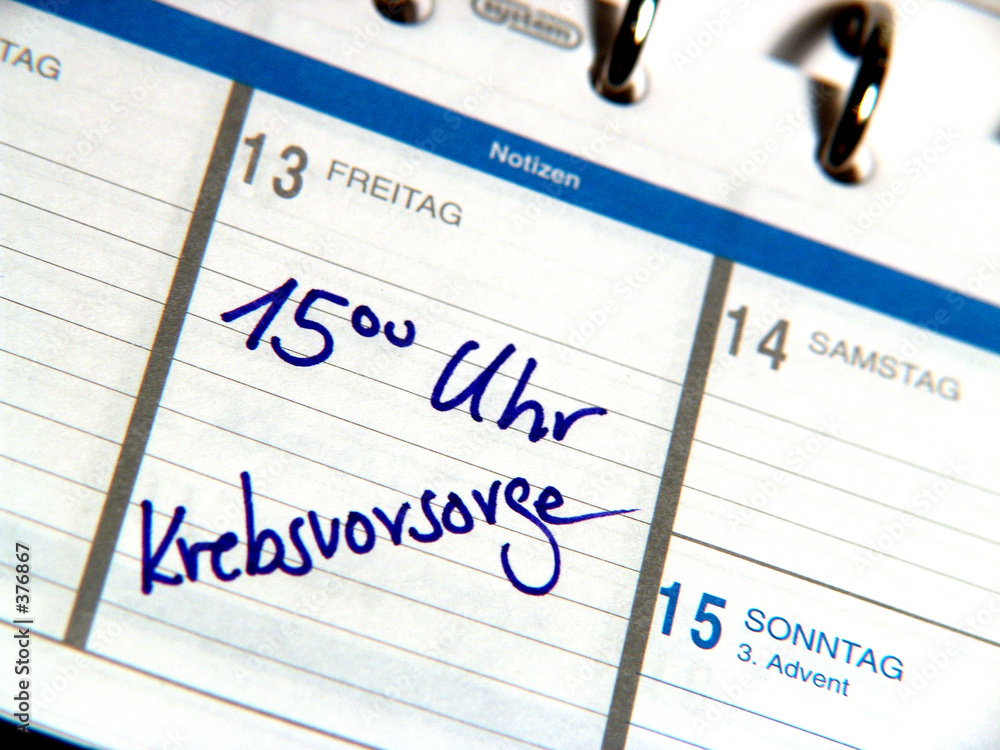 system
TAG
Notizen
13 FREITAG
15⁰⁰ Uhr
Krebsvorsorge
14 SAMSTAG
15 SONNTAG
3. Advent
Adobe Stock | #376867